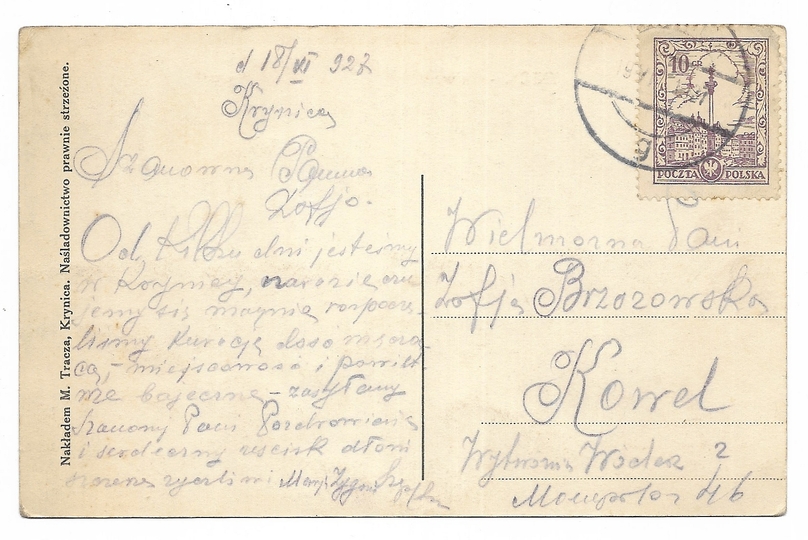 Nakładem M. Tracza, Krynica. Naśladownictwo prawnie strzeżone.
d 18/VI 927
Krynica
Szanowna Panno
Zofjo.
Od kilku dni jesteśmy
w Krynicy, narazie czu
jemy się marnie rozpocze
liśmy kurację dość męczą
cą, - miejscowość i powiet
rze bajeczne - zasyłamy
szanownej Pani Pozdrowienia
i serdeczny uścisk dłoni
szczerze życzliwi
10 GR
POCZTA POLSKA
Wielmożna Pani
Zofja Brzozowska
Kowel
Wytwornia Wódek